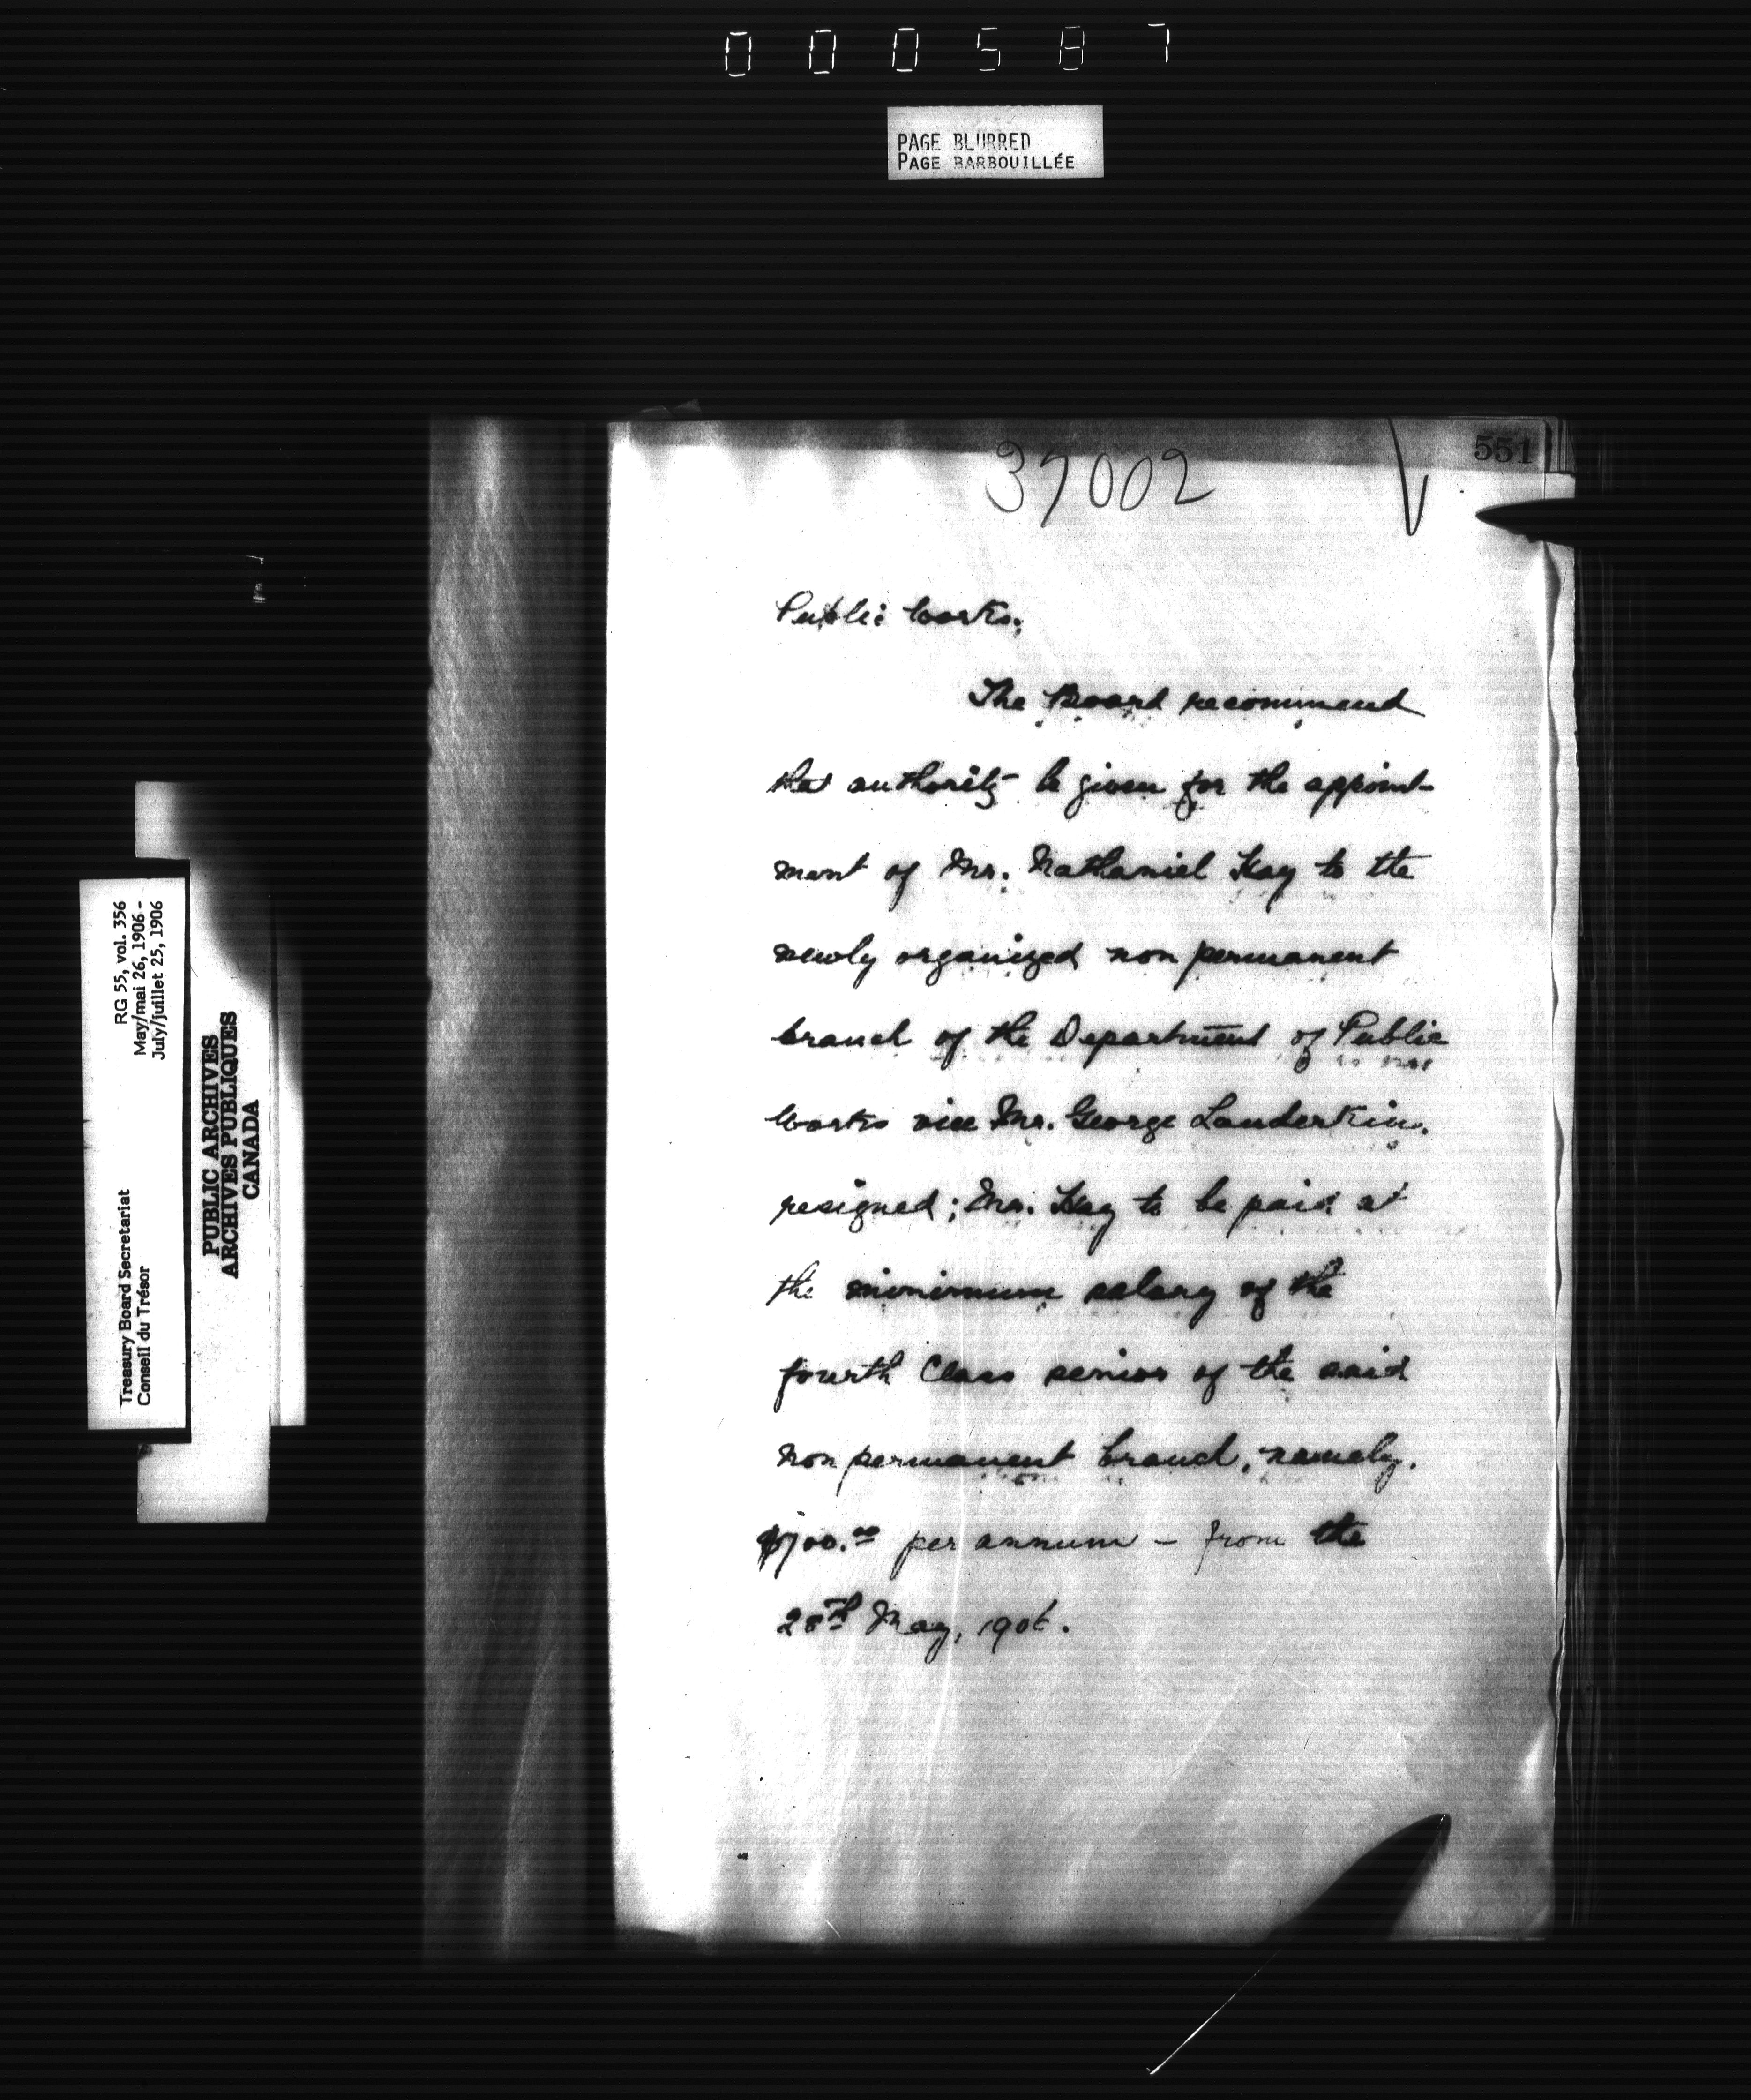 000587
PAGE BLURRED
PAGE BARBOUILLÉE
551
37002
Public Works.
The Board recommend
that authority be given for the appoint-
ment of Mr. Nathaniel Kay to the
newly organized non permanent
branch of the Department of Public
Works vice Mr. George Landerkin.
resigned; Mr. Kay to be paid at
the minimum salary of the
fourth Class senior of the said
non permanent branch, namely,
$700.00 per annum - from the
28th May, 1906.
RG 55, vol. 356
May/mai 26, 1906 -
July/juillet 25, 1906
Treasury Board Secretariat
Conseil du Trésor
PUBLIC ARCHIVES
ARCHIVES PUBLIQUES
CANADA